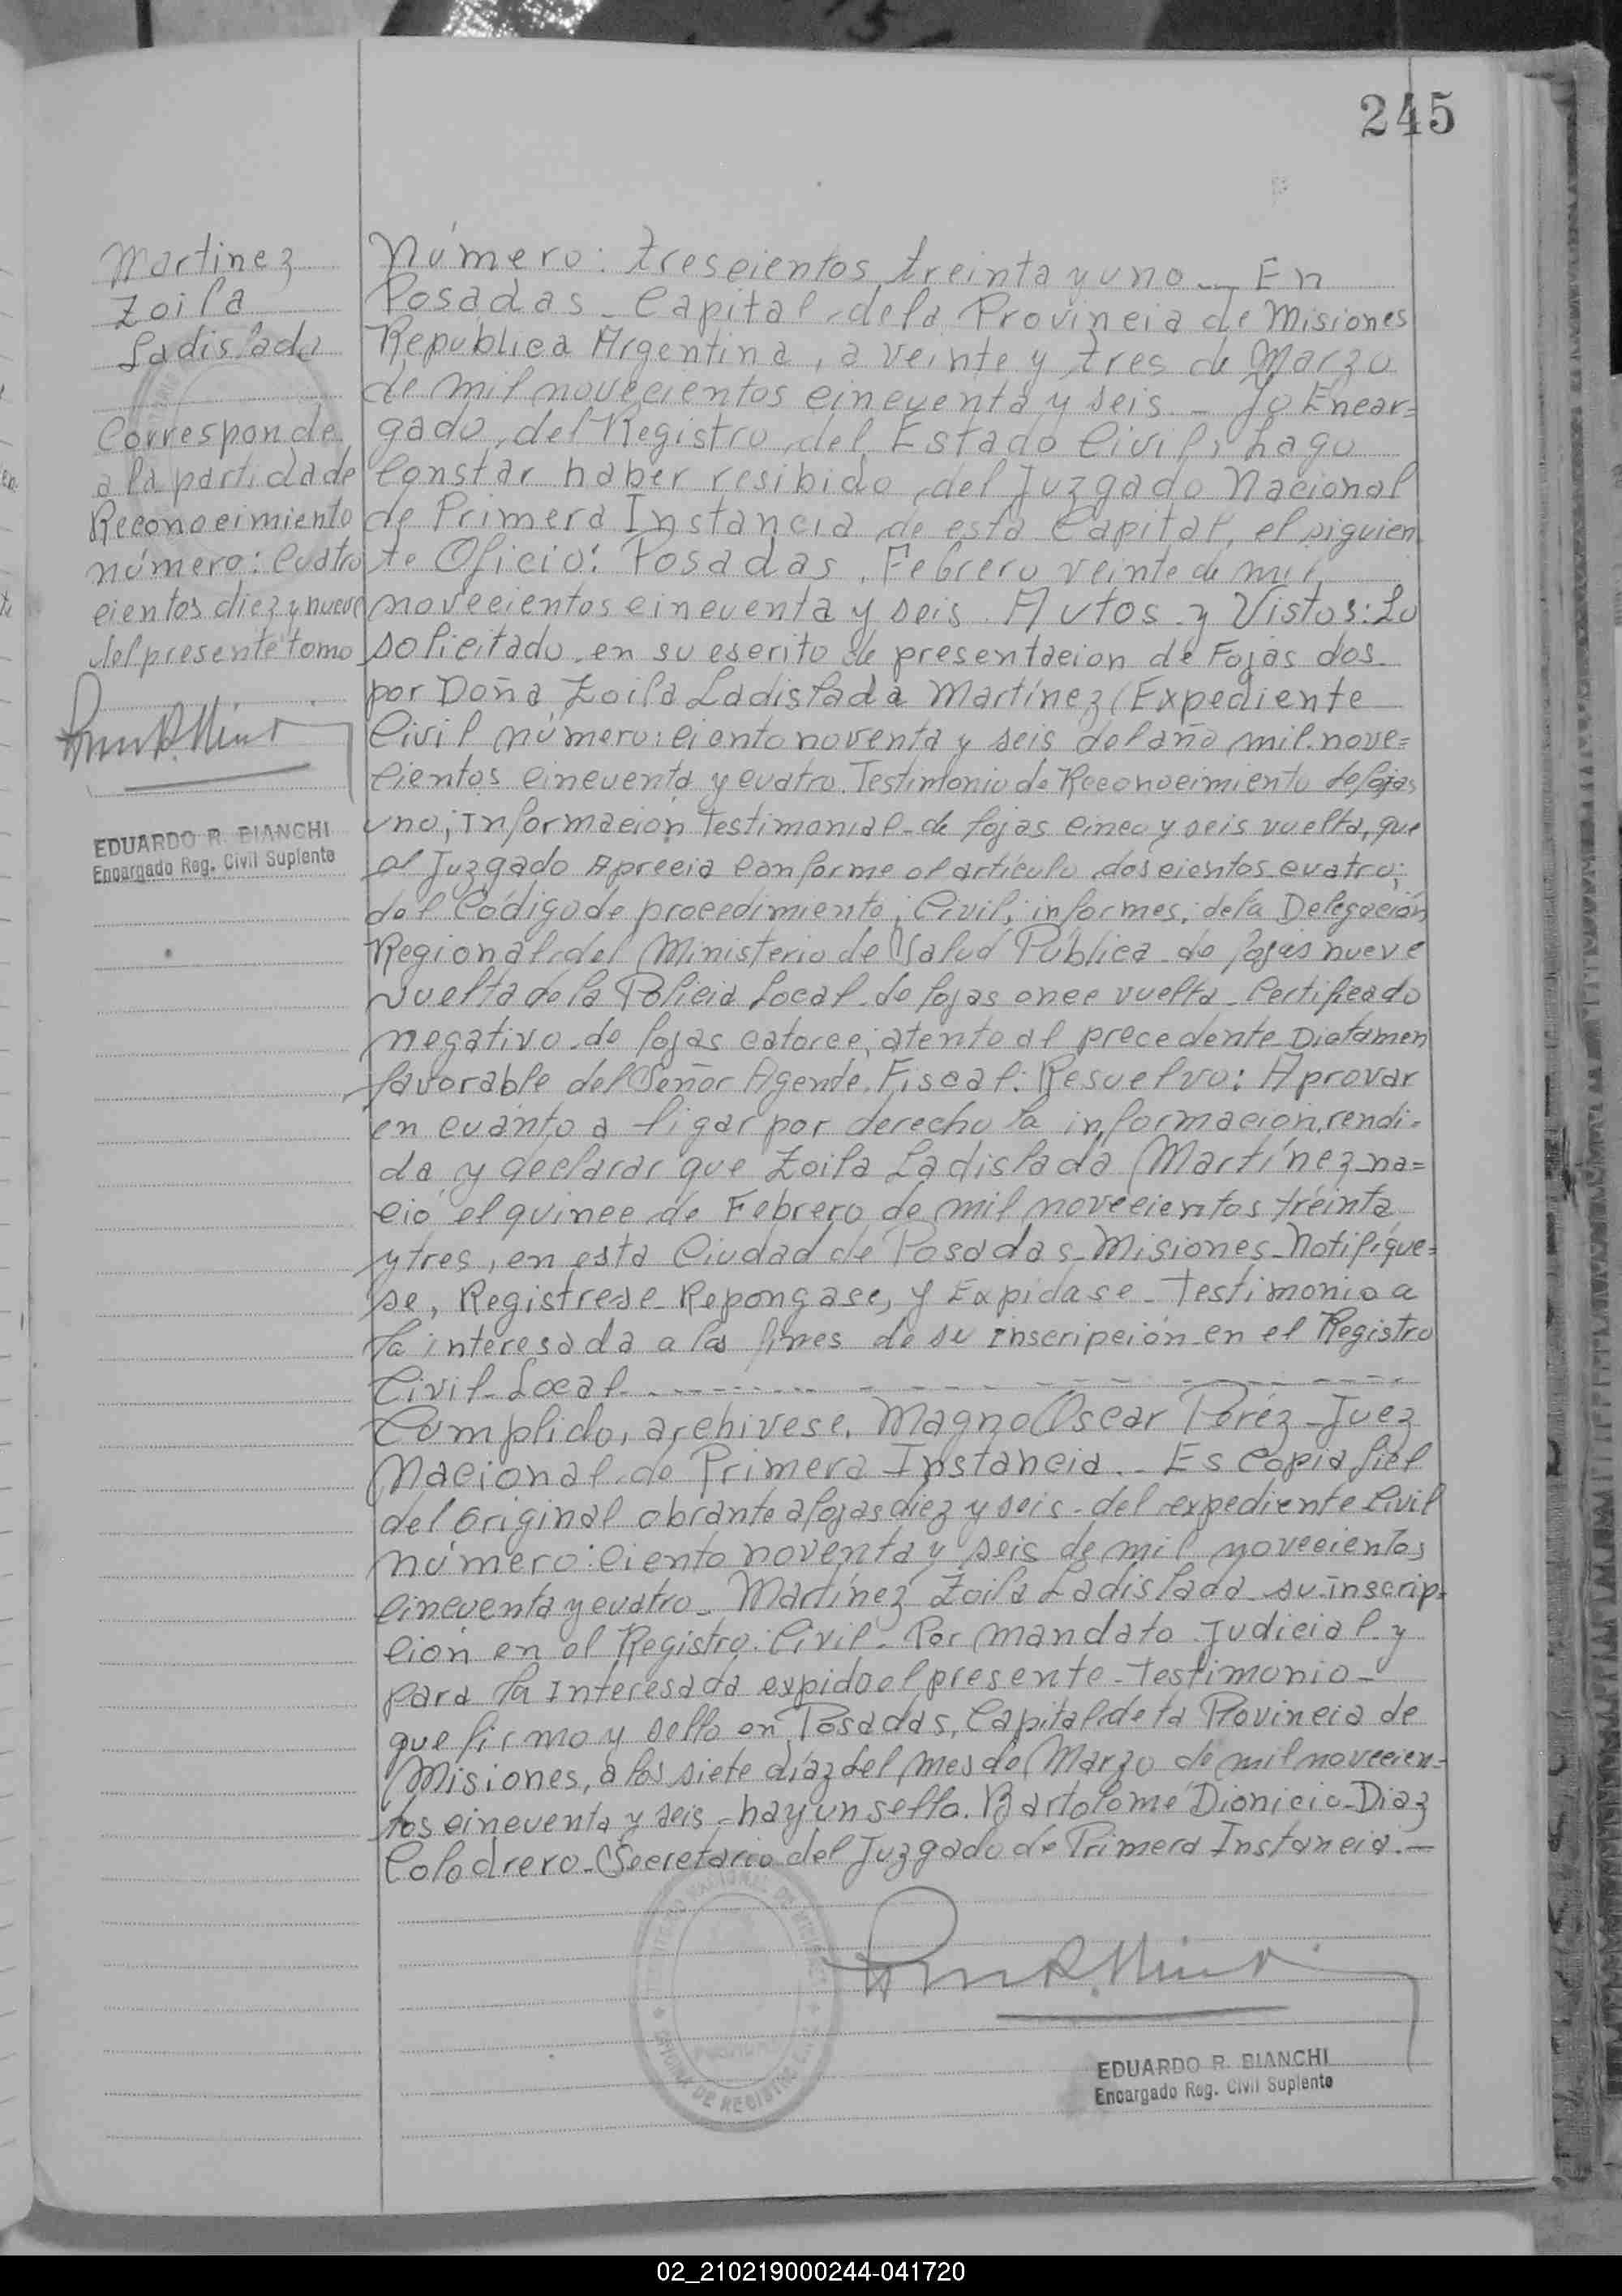 245
Martinez
Zoila
Ladislada
Corresponde
a la partida de
Reconocimiento
número: Cuatro
cientos diez y nueve
del presente tomo
EDUARDO R. BIANCHI
Encargado Reg. Civil Suplente
Número: trescientos treinta y uno - En
Posadas - Capital de la Provincia de Misiones
República Argentina, a veinte y tres de Marzo
de mil novecientos cincuenta y seis. - Yo Encar=
gado del Registro del Estado Civil, hago
Constar haber resibido del Juzgado Nacional
de Primera Instancia de esta Capital, el siguien
te Oficio: Posadas, Febrero veinte de mil
novecientos cincuenta y seis. Autos y Vistos: Lo
solicitado en su escrito de presentacion de Fojas dos
por Doña Zoila Ladislada Martínez (Expediente
Civil número: ciento noventa y seis del año mil nove=
cientos cincuenta y cuatro. Testimonio de Reconocimiento de fojas
uno; Información Testimonial de fojas cinco y seis vuelta, que
el Juzgado Aprecia Conforme al artículo doscientos cuatro;
del Código de procedimiento; Civil; informes; de la Delegación
Regional del Ministerio de Salud Pública de fojas nueve
vuelta de la Policia Local de fojas once vuelta - Certificado
negativo de fojas catorce; atento al precedente Dictamen
favorable del Señor Agente Fiscal: Resuelvo: Aprovar
en cuanto a ligar por derecho la información rendi-
da y declarar que Zoila Ladislada Martínez na=
ció el quince de Febrero de mil novecientos treinta
y tres, en esta Ciudad de Posadas - Misiones - Notifique=
se, Registrese Repongase, y Expidase - Testimonio a
la interesada a los fines de su inscripción en el Registro
Civil Local - - - - - - - - - - - - - -
Cumplido, archivese. Magno Oscar Peréz - Juez
Nacional de Primera Instancia. - Es Copia fiel
del original obrante a fojas diez y seis - del expediente Civil
número: ciento noventa y seis de mil novecientos
cincuenta y cuatro - Martínez Zoila Ladislada su inscrip=
ción en el Registro Civil - Por mandato Judicial y
para la Interesada expido el presente - testimonio -
que firmo y sello en Posadas, Capital de la Provincia de
Misiones, a los siete díaz del mes de Marzo de mil novecien=
tos cincuenta y seis - hay un sello. Bartolomé Dionicio Diaz
Colodrero - Secretario del Juzgado de Primera Instancia. -
EDUARDO R. BIANCHI
Encargado Reg. Civil Suplente
02_210219000244-041720